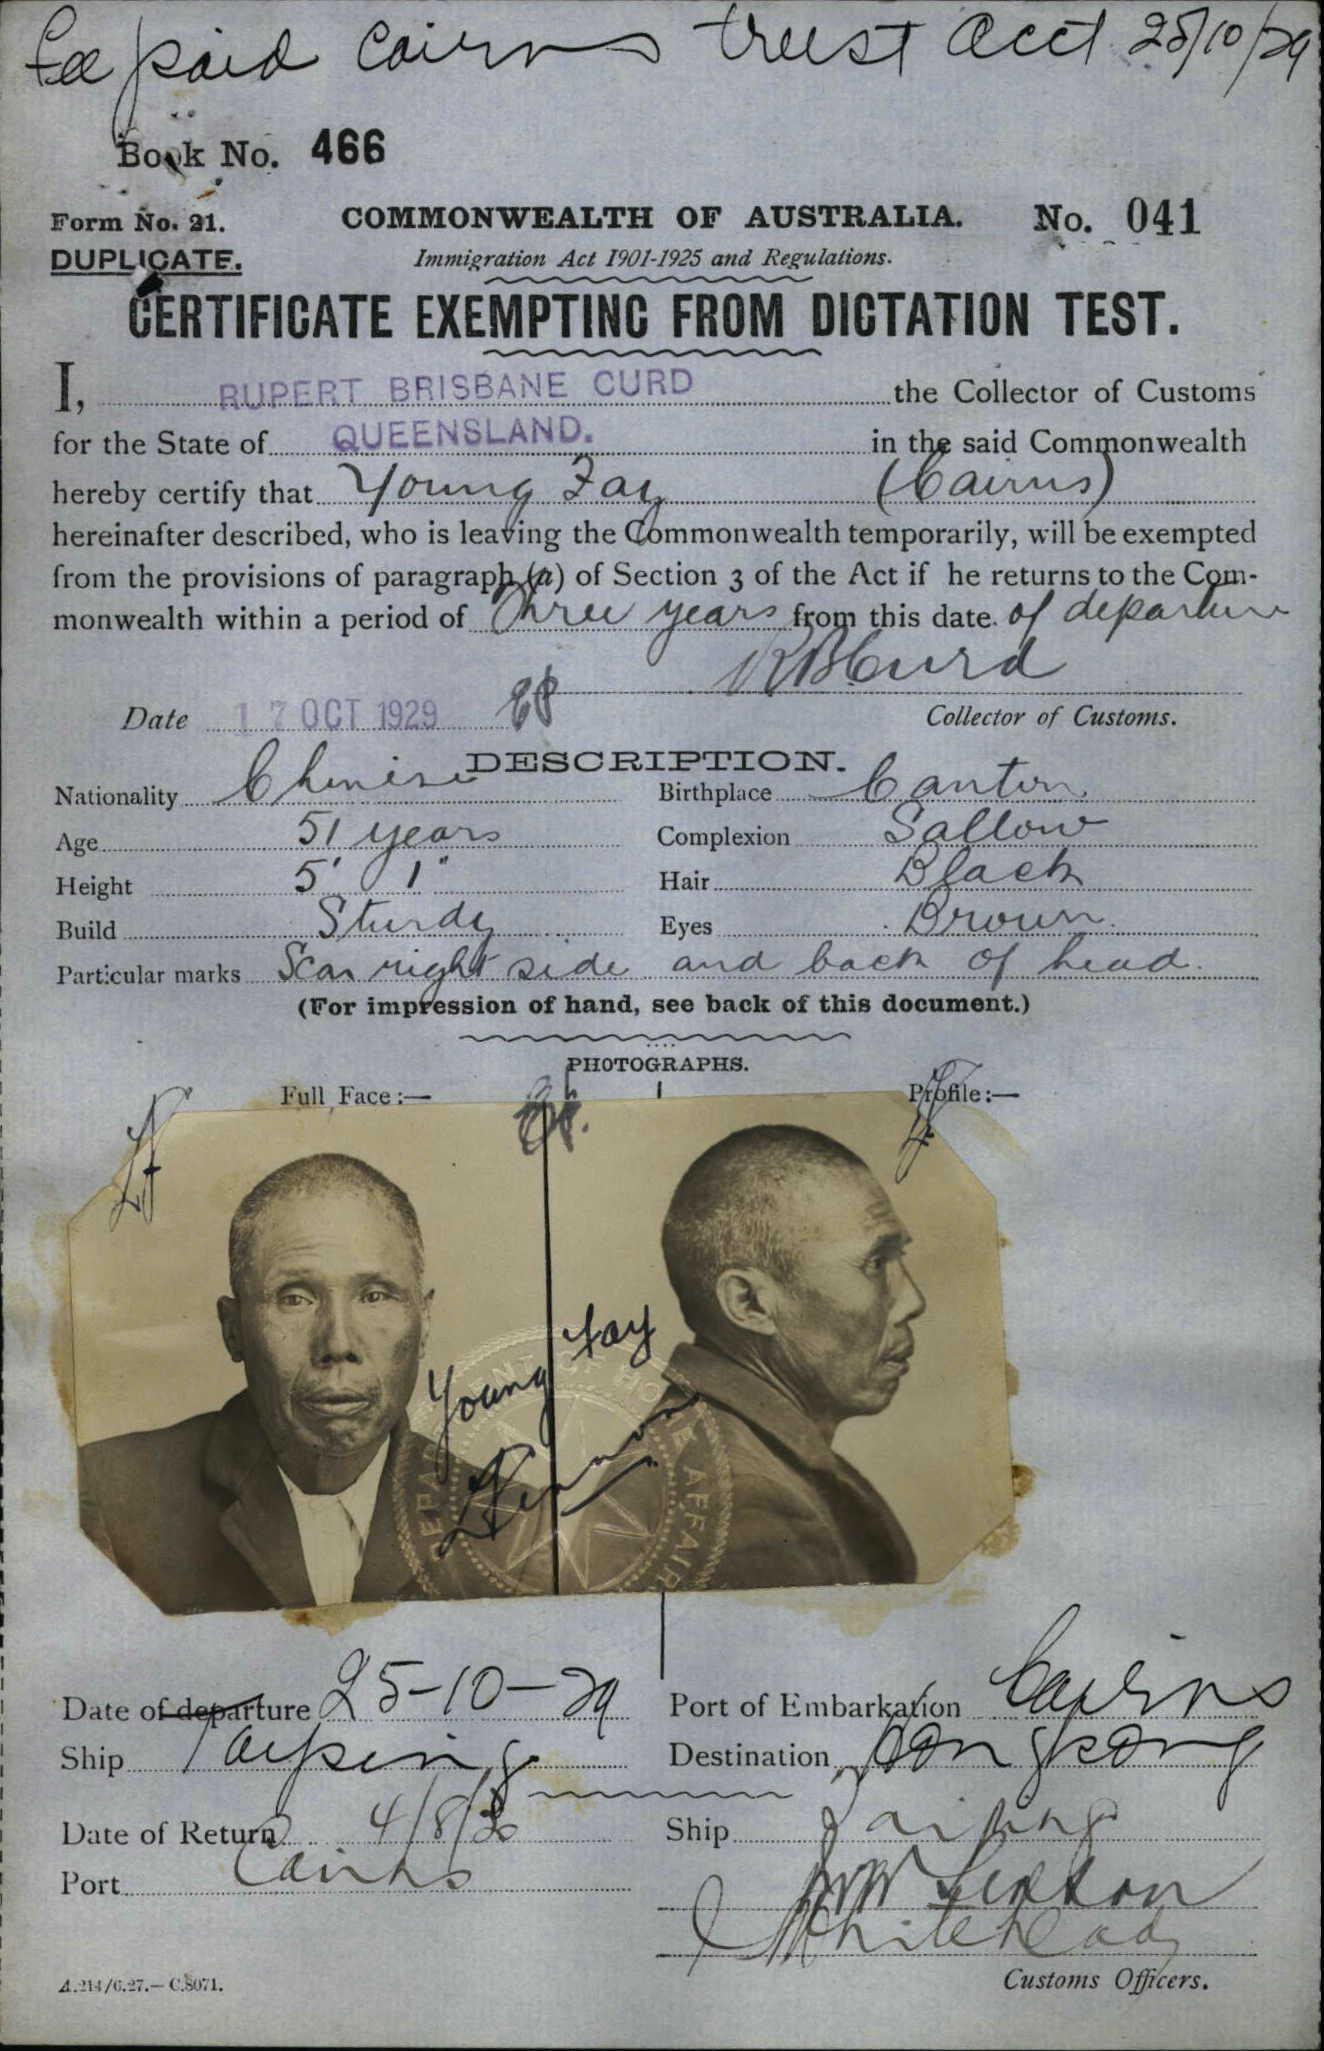 Fee paid Cairns trust acct 25/10/29
Book No. 466
Form No. 21. COMMONWEALTH OF AUSTRALIA. No. 041
DUPLICATE. Immigration Act 1901-1925 and Regulations.
CERTIFICATE EXEMPTING FROM DICTATION TEST.
I, RUPERT BRISBANE CURD the Collector of Customs
for the State of QUEENSLAND. in the said Commonwealth
hereby certify that Young Fay (Cairns)
hereinafter described, who is leaving the Commonwealth temporarily, will be exempted
from the provisions of paragraph (a) of Section 3 of the Act if he returns to the Com-
monwealth within a period of Three years from this date of departure
RBCurd
Date 17 OCT 1929 Collector of Customs.
DESCRIPTION.
Nationality Chinese Birthplace Canton
Age 51 years Complexion Sallow
Height 5' 1" Hair Black
Build Sturdy Eyes Brown
Particular marks Scar right side and back of head.
(For impression of hand, see back of this document.)
PHOTOGRAPHS.
Full Face:— Profile:—
Young Fay
Date of departure 25-10-29 Port of Embarkation Cairns
Ship Taiping Destination Hongkong
Date of Return 4/8/30 Ship Taiping
Port Cairns
Whitehead
Customs Officers.
A.214/6.27.—C.8071.